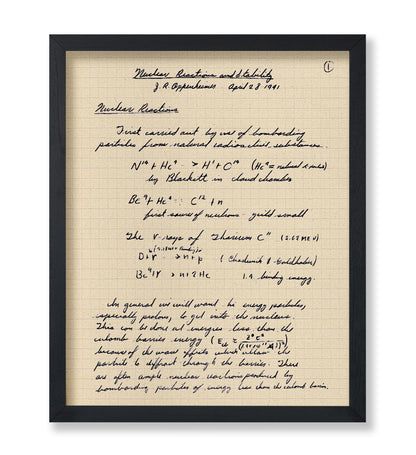 ①
Nuclear Reactions and Stability
J. R. Oppenheimer April 28 1941
Nuclear Reactions
First carried out by use of bombarding
particles from natural radioactive substances.
N¹⁴ + He⁴ → H¹ + O¹⁷ (He⁴ = natural α rules)
by Blackett in cloud chamber
Be⁹ + He⁴ → C¹² + n
first source of neutrons - yield small
The γ rays of Thorium C" (2.62 MEV)
D + γ → n + p (Chadwick & Goldhaber)
Be⁹ + γ → n + 2He 1.9 binding energy.
In general we will want hi energy particles,
especially protons, to get into the nucleus.
This can be done at energies less than the
coulomb barrier energy
because of the wave effects which allow the
particle to diffract through the barrier. There
are often ample nuclear reactions produced by
bombarding particles of energy less than the coulomb barrier.